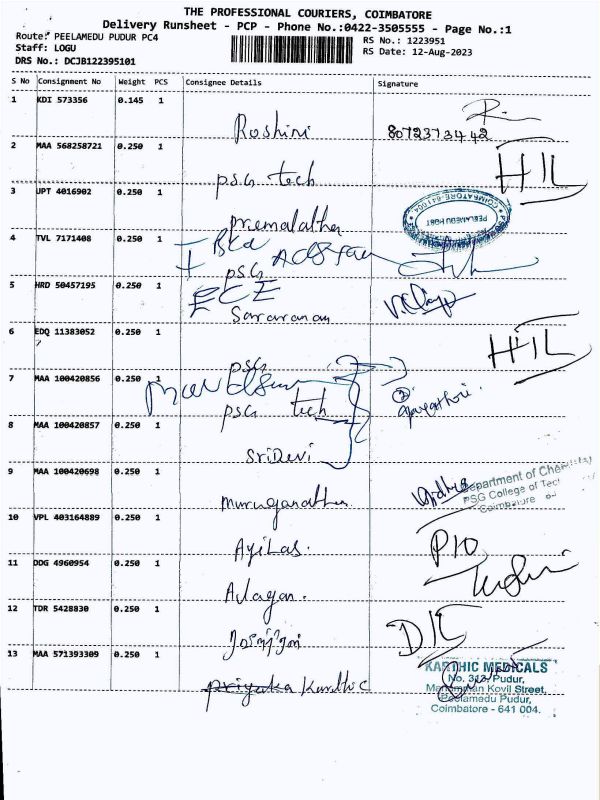 THE PROFESSIONAL COURIERS, COIMBATORE
Delivery Runsheet - PCP - Phone No.:0422-3505555 - Page No.:1
Route: PEELAMEDU PUDUR PC4
Staff: LOGU
DRS No.: DCJB122395101
RS No.: 1223951
RS Date: 12-Aug-2023
S No Consignment No Weight PCS Consignee Details Signature
1 KDI 573356 0.145 1
Roshini 8072373442
2 MAA 568258721 0.250 1
psg tech HIL
3 JPT 4016902 0.250 1
premalatha
COIMBATORE-641004
PEELAMEDU POST
4 TVL 7171408 0.250 1
psg
5 HRD 50457195 0.250 1
ECE
Saravanan
6 EDQ 11383052 0.250 1
psg HIL
7 MAA 100420856 0.250 1
psg tech
8 MAA 100420857 0.250 1
SriDevi
9 MAA 100420698 0.250 1
Department of Chemistry
PSG College of Tec
Coimbatore
10 VPL 403164889 0.250 1
P10
11 DDG 4960954 0.250 1
12 TDR 5428830 0.250 1
13 MAA 571393309 0.250 1
priyaka Karthic
KARTHIC MEDICALS
No. 313, Pudur,
Kovil Street,
Peelamedu Pudur,
Coimbatore - 641 004.